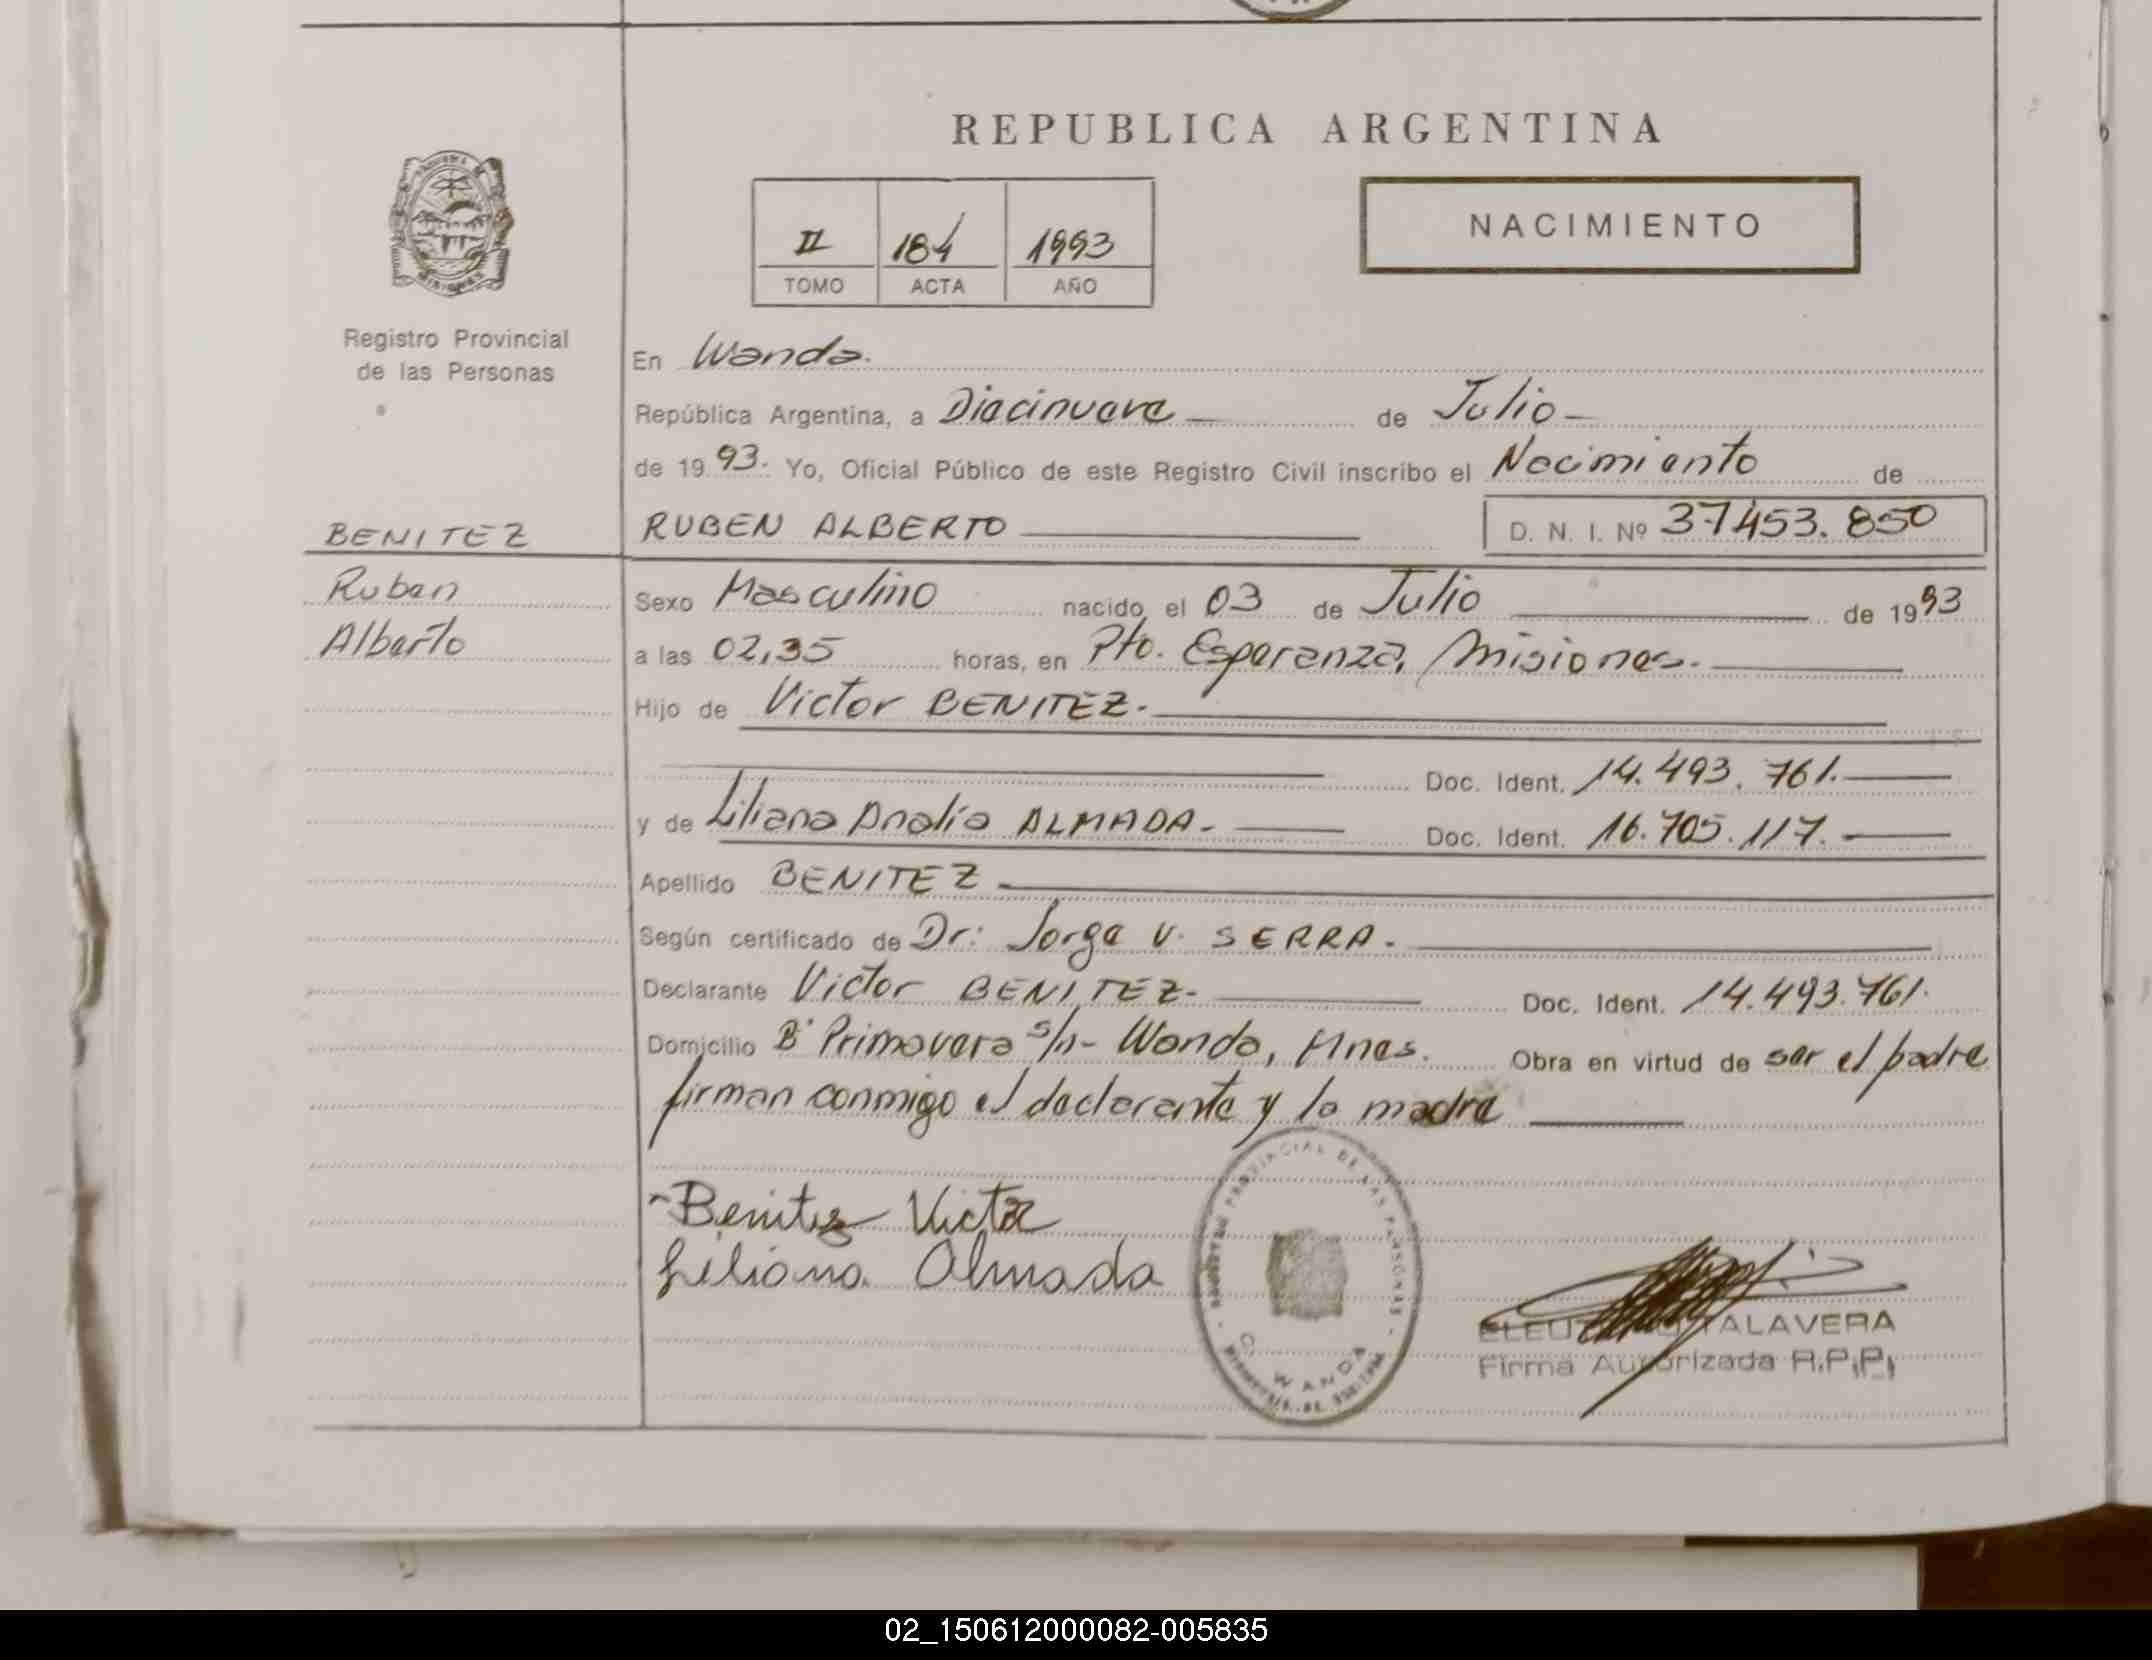 REPUBLICA ARGENTINA
NACIMIENTO
II 184 1993
TOMO ACTA AÑO
Registro Provincial
de las Personas
En Wanda.
República Argentina, a Diecinueve de Julio
de 1993. Yo, Oficial Público de este Registro Civil inscribo el Nacimiento de
BENITEZ RUBEN ALBERTO D. N. I. Nº 37453.850
Ruben Sexo Masculino nacido el 03 de Julio de 1993
Alberto a las 02,35 horas, en Pto. Esperanza, Misiones.
Hijo de Victor BENITEZ.
Doc. Ident. 14.493.761.
y de Liliana Analía ALMADA. Doc. Ident. 16.705.117.
Apellido BENITEZ
Según certificado de Dr: Jorge V. SERRA.
Declarante Victor BENITEZ. Doc. Ident. 14.493.761.
Domicilio Bº Primavera s/n- Wanda, Mnes. Obra en virtud de ser el padre
firman conmigo el declarante y la madre
Benitez Victor
Liliana Almada
PROVINCIAL DE LAS PERSONAS
WANDA
TALAVERA
Firma Autorizada R.P.P.
02_150612000082-005835